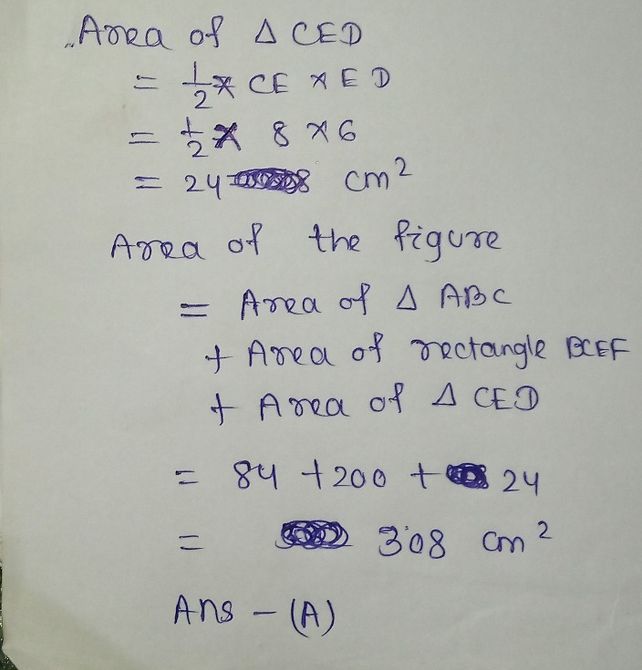 Area of Δ CED
= 1/2 × CE × ED
= 1/2 × 8 × 6
= 24 cm²
Area of the figure
= Area of Δ ABC
+ Area of rectangle BCEF
+ Area of Δ CED
= 84 + 200 + 24
= 308 cm²
Ans - (A)